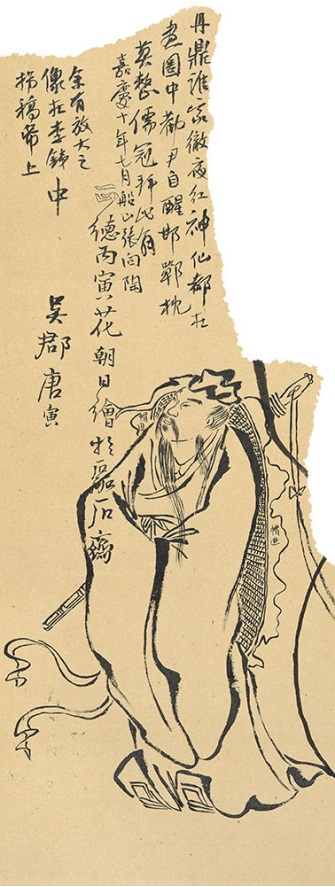 丹鼎誰家徹夜紅神仙都在
畫圖中勸君自醒邯鄲枕
莫整儒冠拜此翁
嘉慶十年七月船山張問陶
德丙寅花朝日繪於石齋
吳郡唐寅
余有放大之
像在李鐵中
拐稿帋上